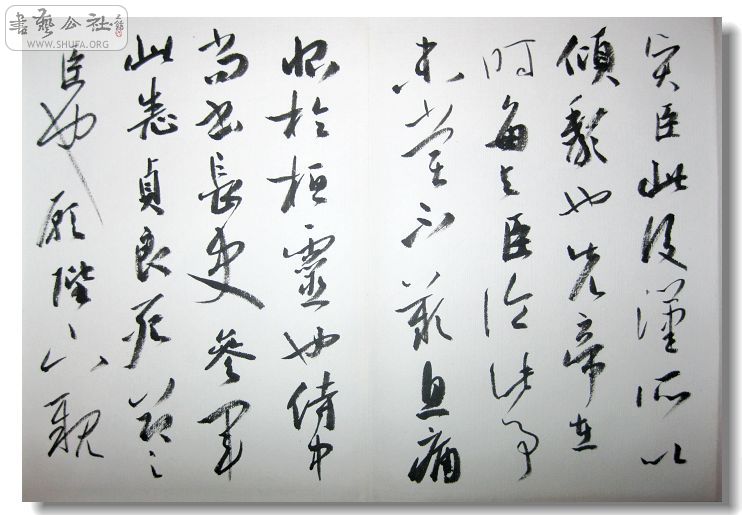 書藝公社
WWW.SHUFA.ORG
賢臣此後漢所以
傾頹也先帝在
時每与臣論此事
未嘗不歎息痛
恨於桓靈也侍中
尚書長史參軍
此悉貞良死節之
臣也願陛下親